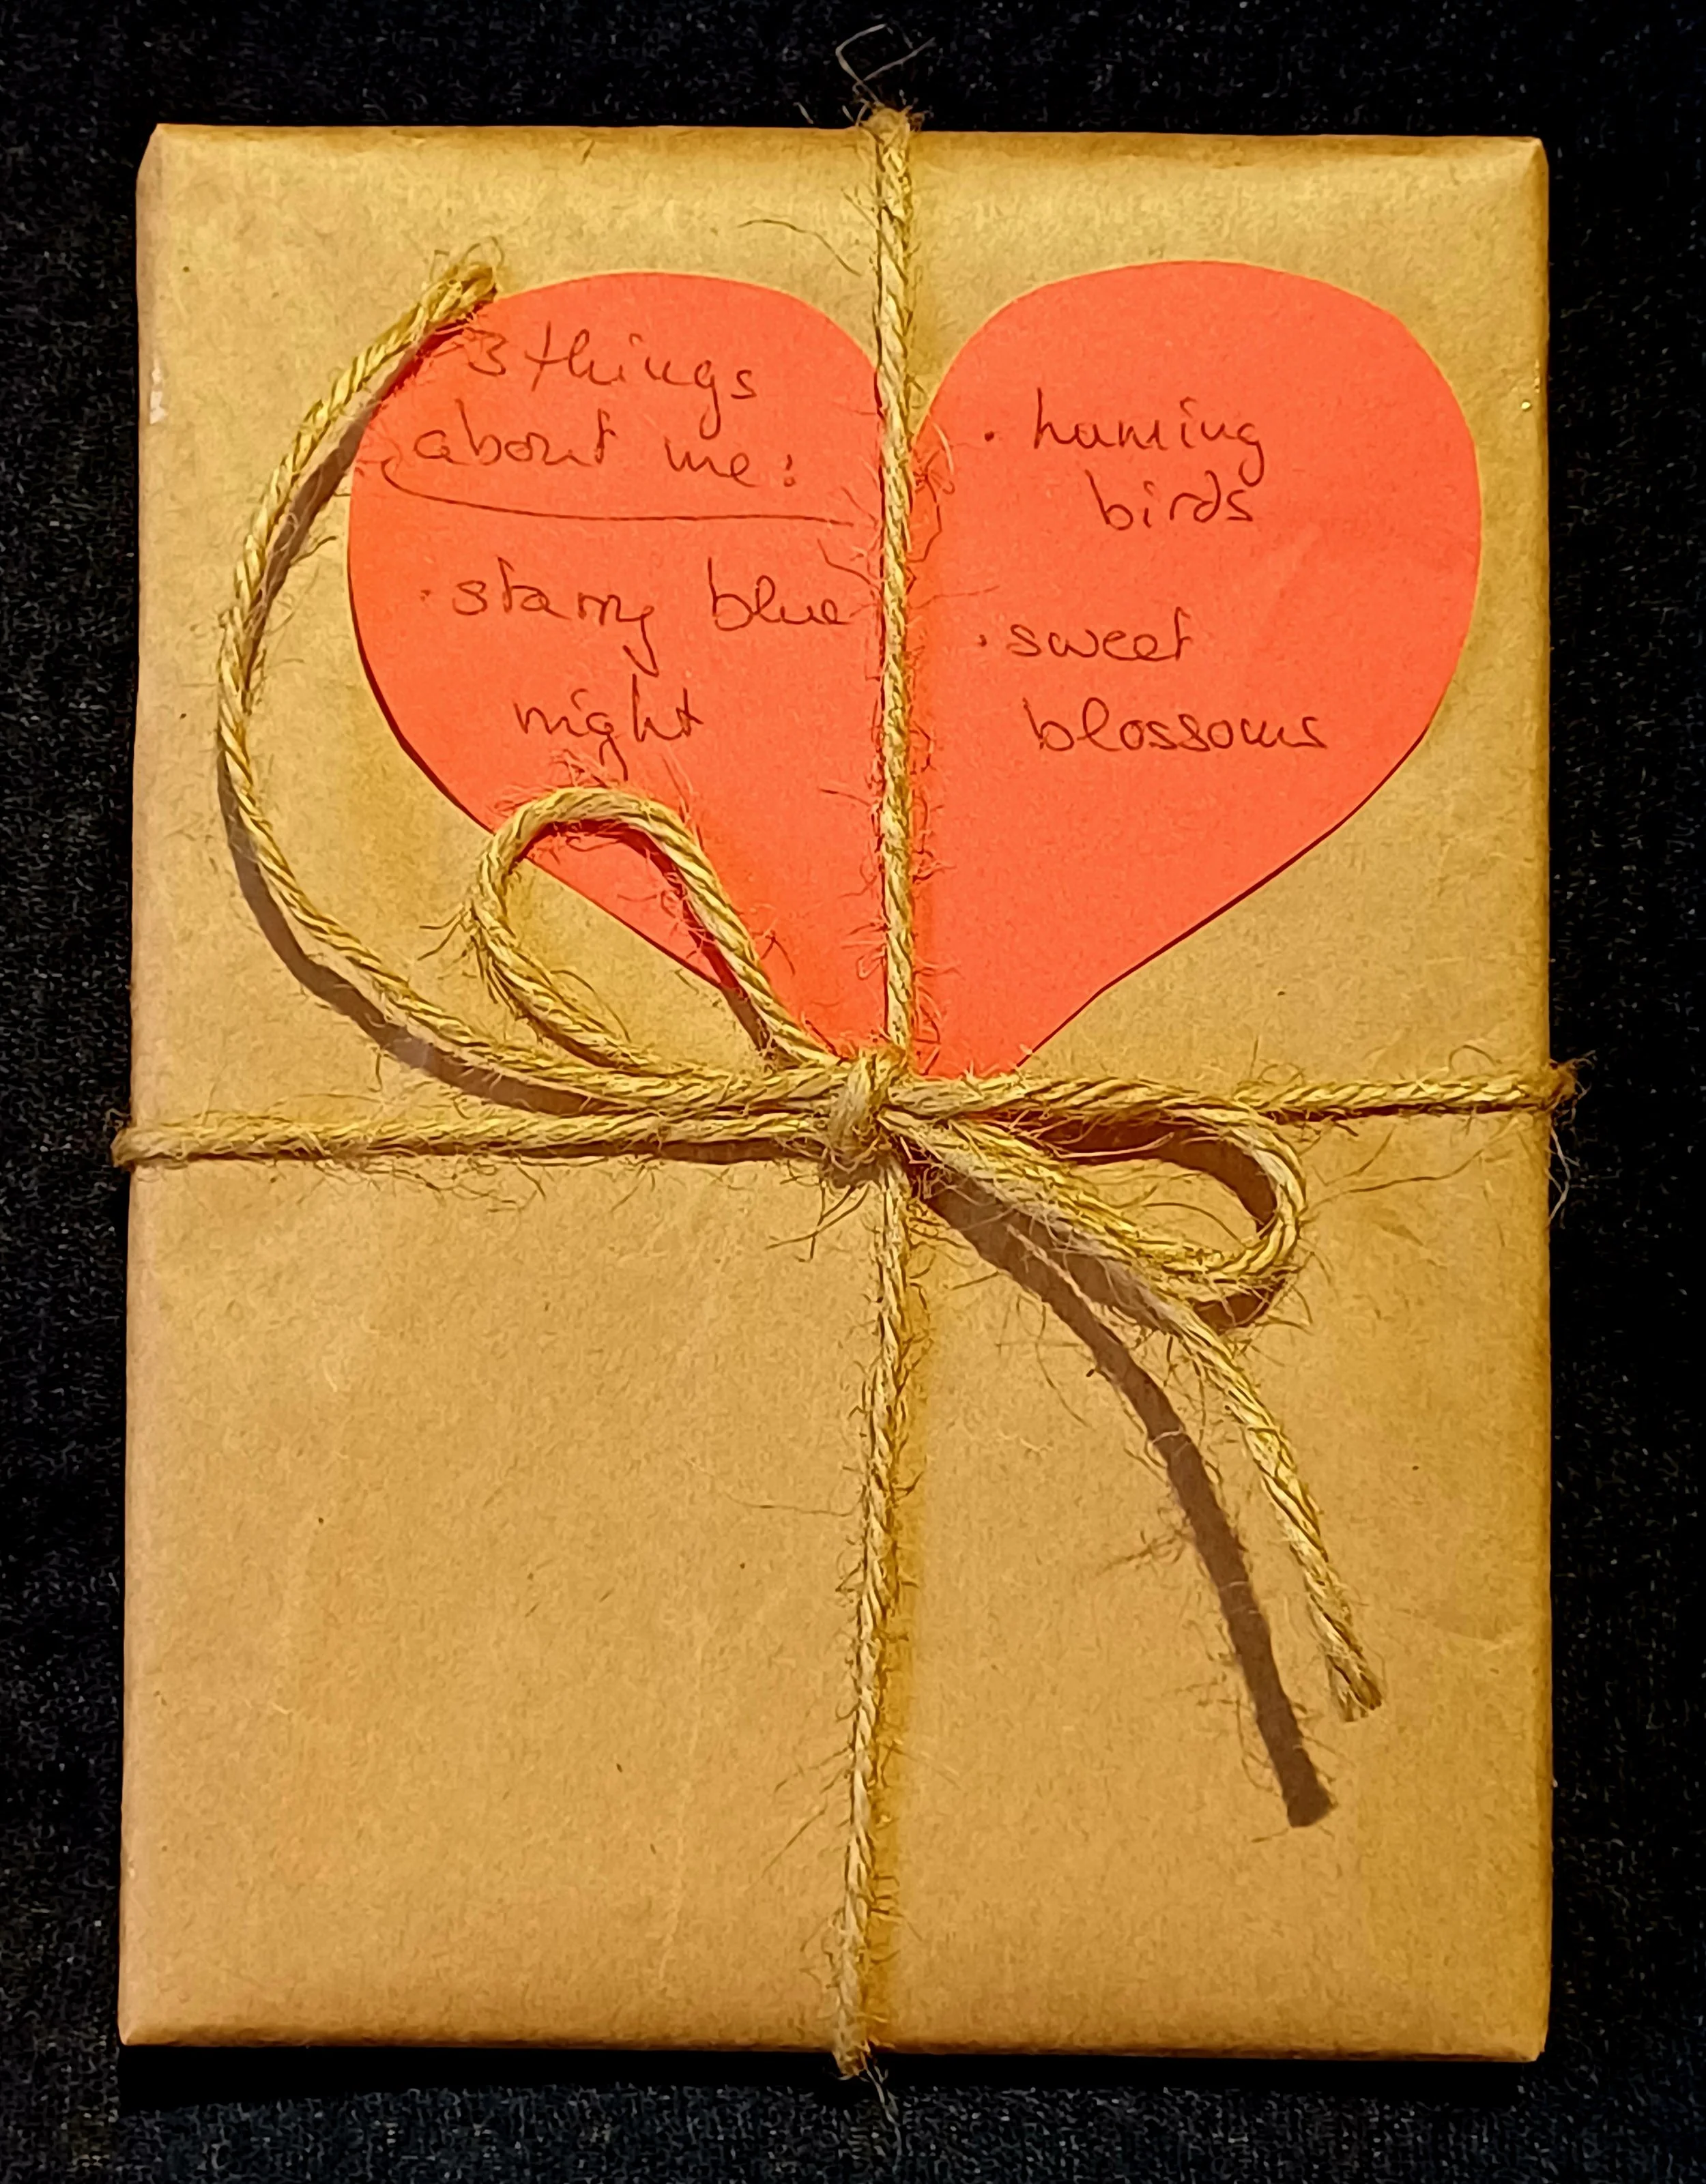 3 things
about me:
· starry blue
night
· huming
birds
· sweet
blossoms